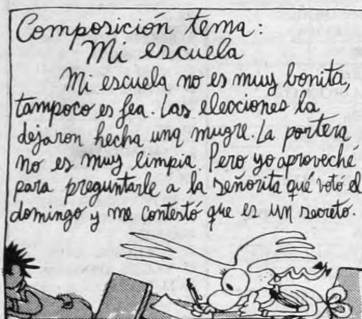 Composición tema:
Mi escuela
Mi escuela no es muy bonita,
tampoco es fea. Las elecciones la
dejaron hecha una mugre. La portera
no es muy limpia. Pero yo aproveché
para preguntarle a la señorita qué votó el
domingo y me contestó que es un secreto.